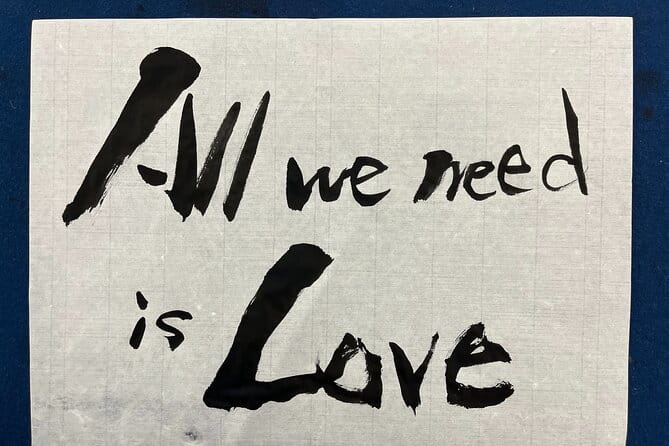 All we need
is Love